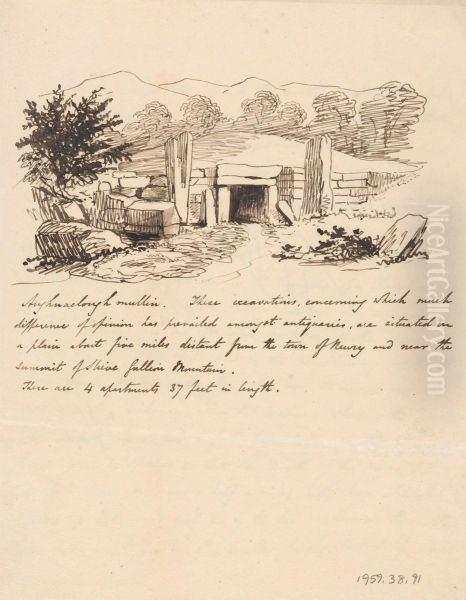 Aughnaclough mullin. These excavations, concerning which much
difference of opinion has prevailed amongst antiqueries, are situated on
a plain about five miles distant from the town of Newry and near the
Summit of Slieve Gullion Mountain.
There are 4 apartments 37 feet in length.
1959.38.91
NiceArtGallery.com